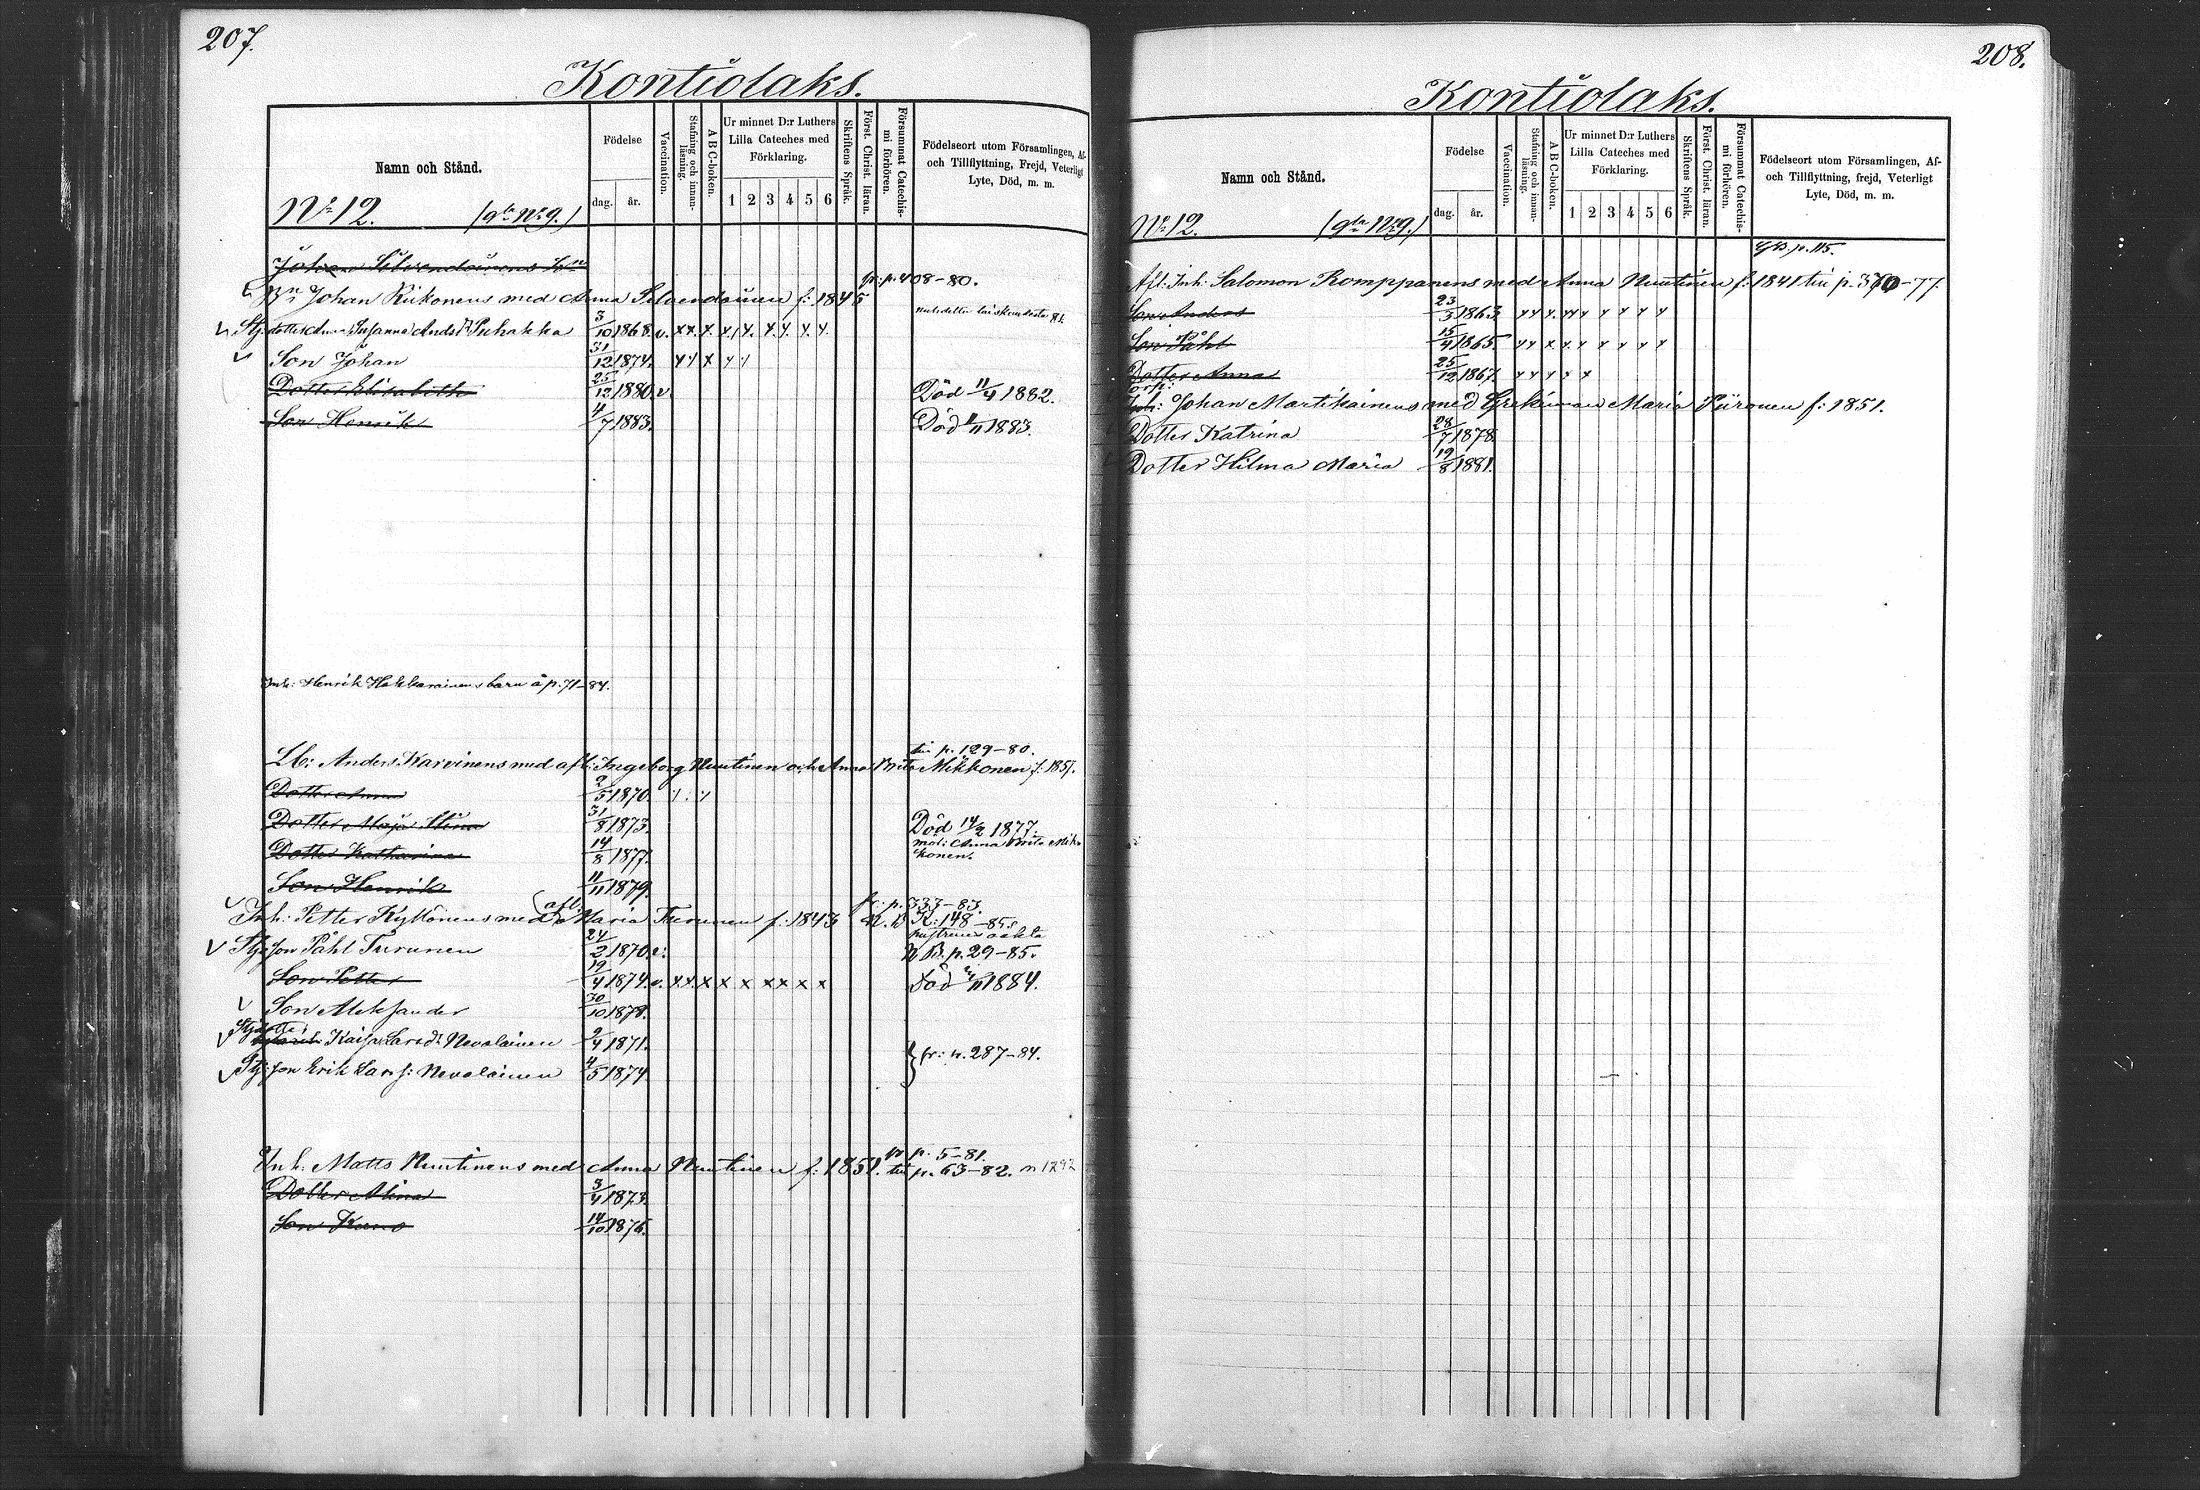 207.
Kontiolaks.
Namn och Stånd.
Födelse
dag. år.
Vaccination.
Stafning och innanläsning.
A B C-boken.
Ur minnet D:r Luthers Lilla Cateches med Förklaring.
1 2 3 4 5 6
Skriftens Språk.
Först. Christ. läran.
Försummat Catechismi förhören.
Födelseort utom Församlingen, Af- och Tillflyttning, Frejd, Veterligt Lyte, Död, m. m.
No 12. (gla No 9.)
Johan
fr: p. 408-80.
Johan Riikonens med Anna f: 1845
Stj:dotter Anna Susanna Anders Dr Puhakka 3/10 1868. v. x x x. x x. x x. x. x.
Son Johan 31/12 1874. x x x x x
Dotter Elisabeth 25/12 1880. v. Död 11/4 1882.
Son Henrik 4/7 1883. Död 1883.
Inh: Henrik Hakkarainens barn å p. 71-84.
till p. 129-80.
Lb: Anders Karvinens med afl: Ingeborg Nuutinen och Anna Brita Mikkonen f: 1851.
Dotter Anna 2/5 1870. x. x
Dotter Maja Stina 31/8 1873. Död 14/2 1877.
Dotter Katharina 14/8 1877. mod: Anna Brita Mikkonen.
Son Henrik 11/11 1879.
fr: p. 333-83.
Inh: Petter Kyttönens med afl: Maria Turunen f: 1843 K: 148-85
Stj:son Påhl Turunen 24/2 1870. v. N B. p. 29-85.
Son Petter 19/4 1874. v. x x x x x x x x x Död 1884.
Son Aleksander 30/10 1878.
Stj:dotter Kaisa Larsdr Nevalainen 2/4 1871.
fr: p. 287-84.
Stj:son Erik Lars s: Nevalainen 4/5 1874.
fr p. 5-81.
Inh: Matts Nuutinens med Anna Nuutinen f: 1851. till p. 63-82.
Dotter Alina 3/4 1873.
Son 14/10 1876.
208.
Kontiolaks.
Namn och Stånd.
Födelse
dag. år.
Vaccination.
Stafning och innanläsning.
A B C-boken.
Ur minnet D:r Luthers Lilla Cateches med Förklaring.
1 2 3 4 5 6
Skriftens Språk.
Först. Christ. läran.
Försummat Catechismi förhören.
Födelseort utom Församlingen, Af- och Tillflyttning, frejd, Veterligt Lyte, Död, m. m.
No 12. (gla No 9.)
p. 115.
Afl: Inh: Salomon Romppanens med Anna Nuutinen f: 1841 till p. 370-77.
Son Anders 23/3 1863 x x x. x x x x x x
Son Påhl 15/4 1865. x x x. x x x x x x
Dotter Anna 25/12 1867. x x x x x
Torp:
Inh: Johan Martikainens med Grekiman Maria Piironen f: 1851.
Dotter Katrina 28/7 1878.
Dotter Hilma Maria 19/8 1881.